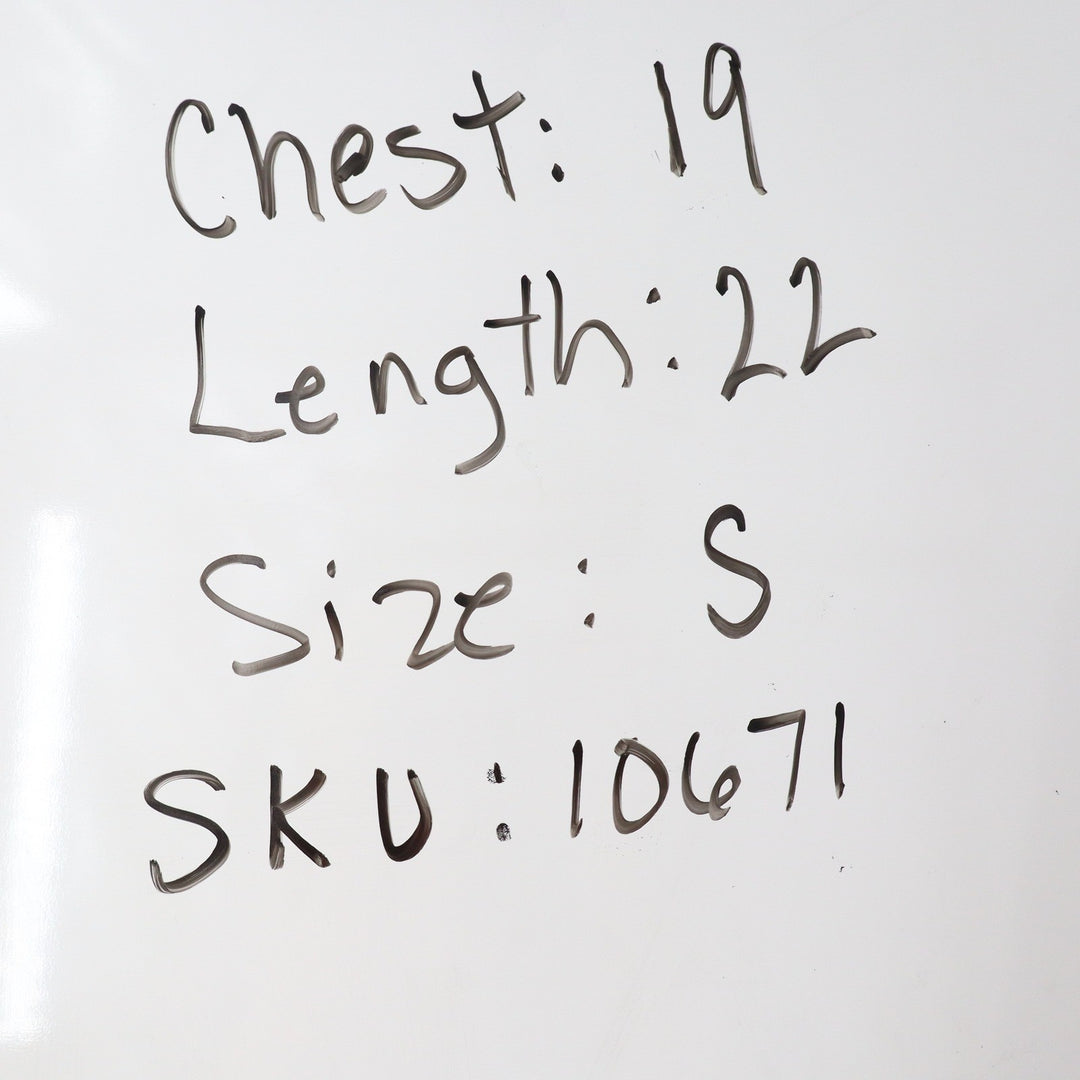 Chest: 19
Length: 22
Size: S
SKU: 10671